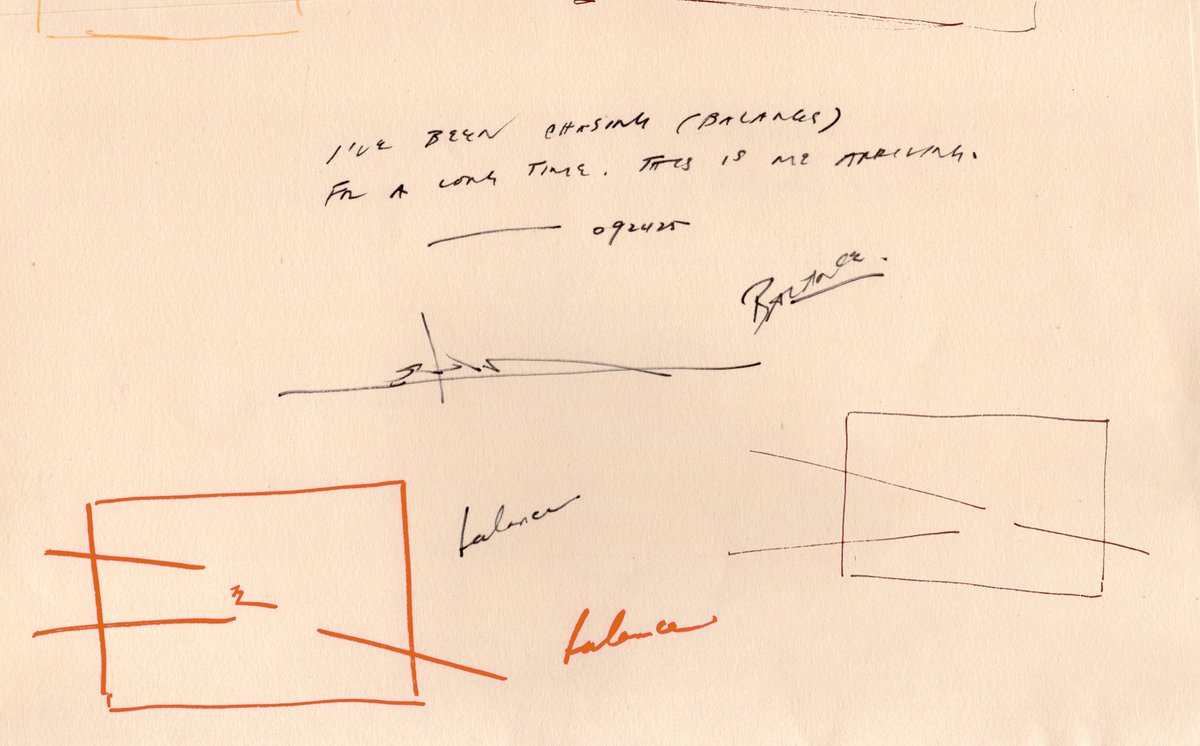 I'VE BEEN CHASING (BALANCE)
FOR A LONG TIME. THIS IS ME ARRIVING.
092425
BALANCE.
balance
balance